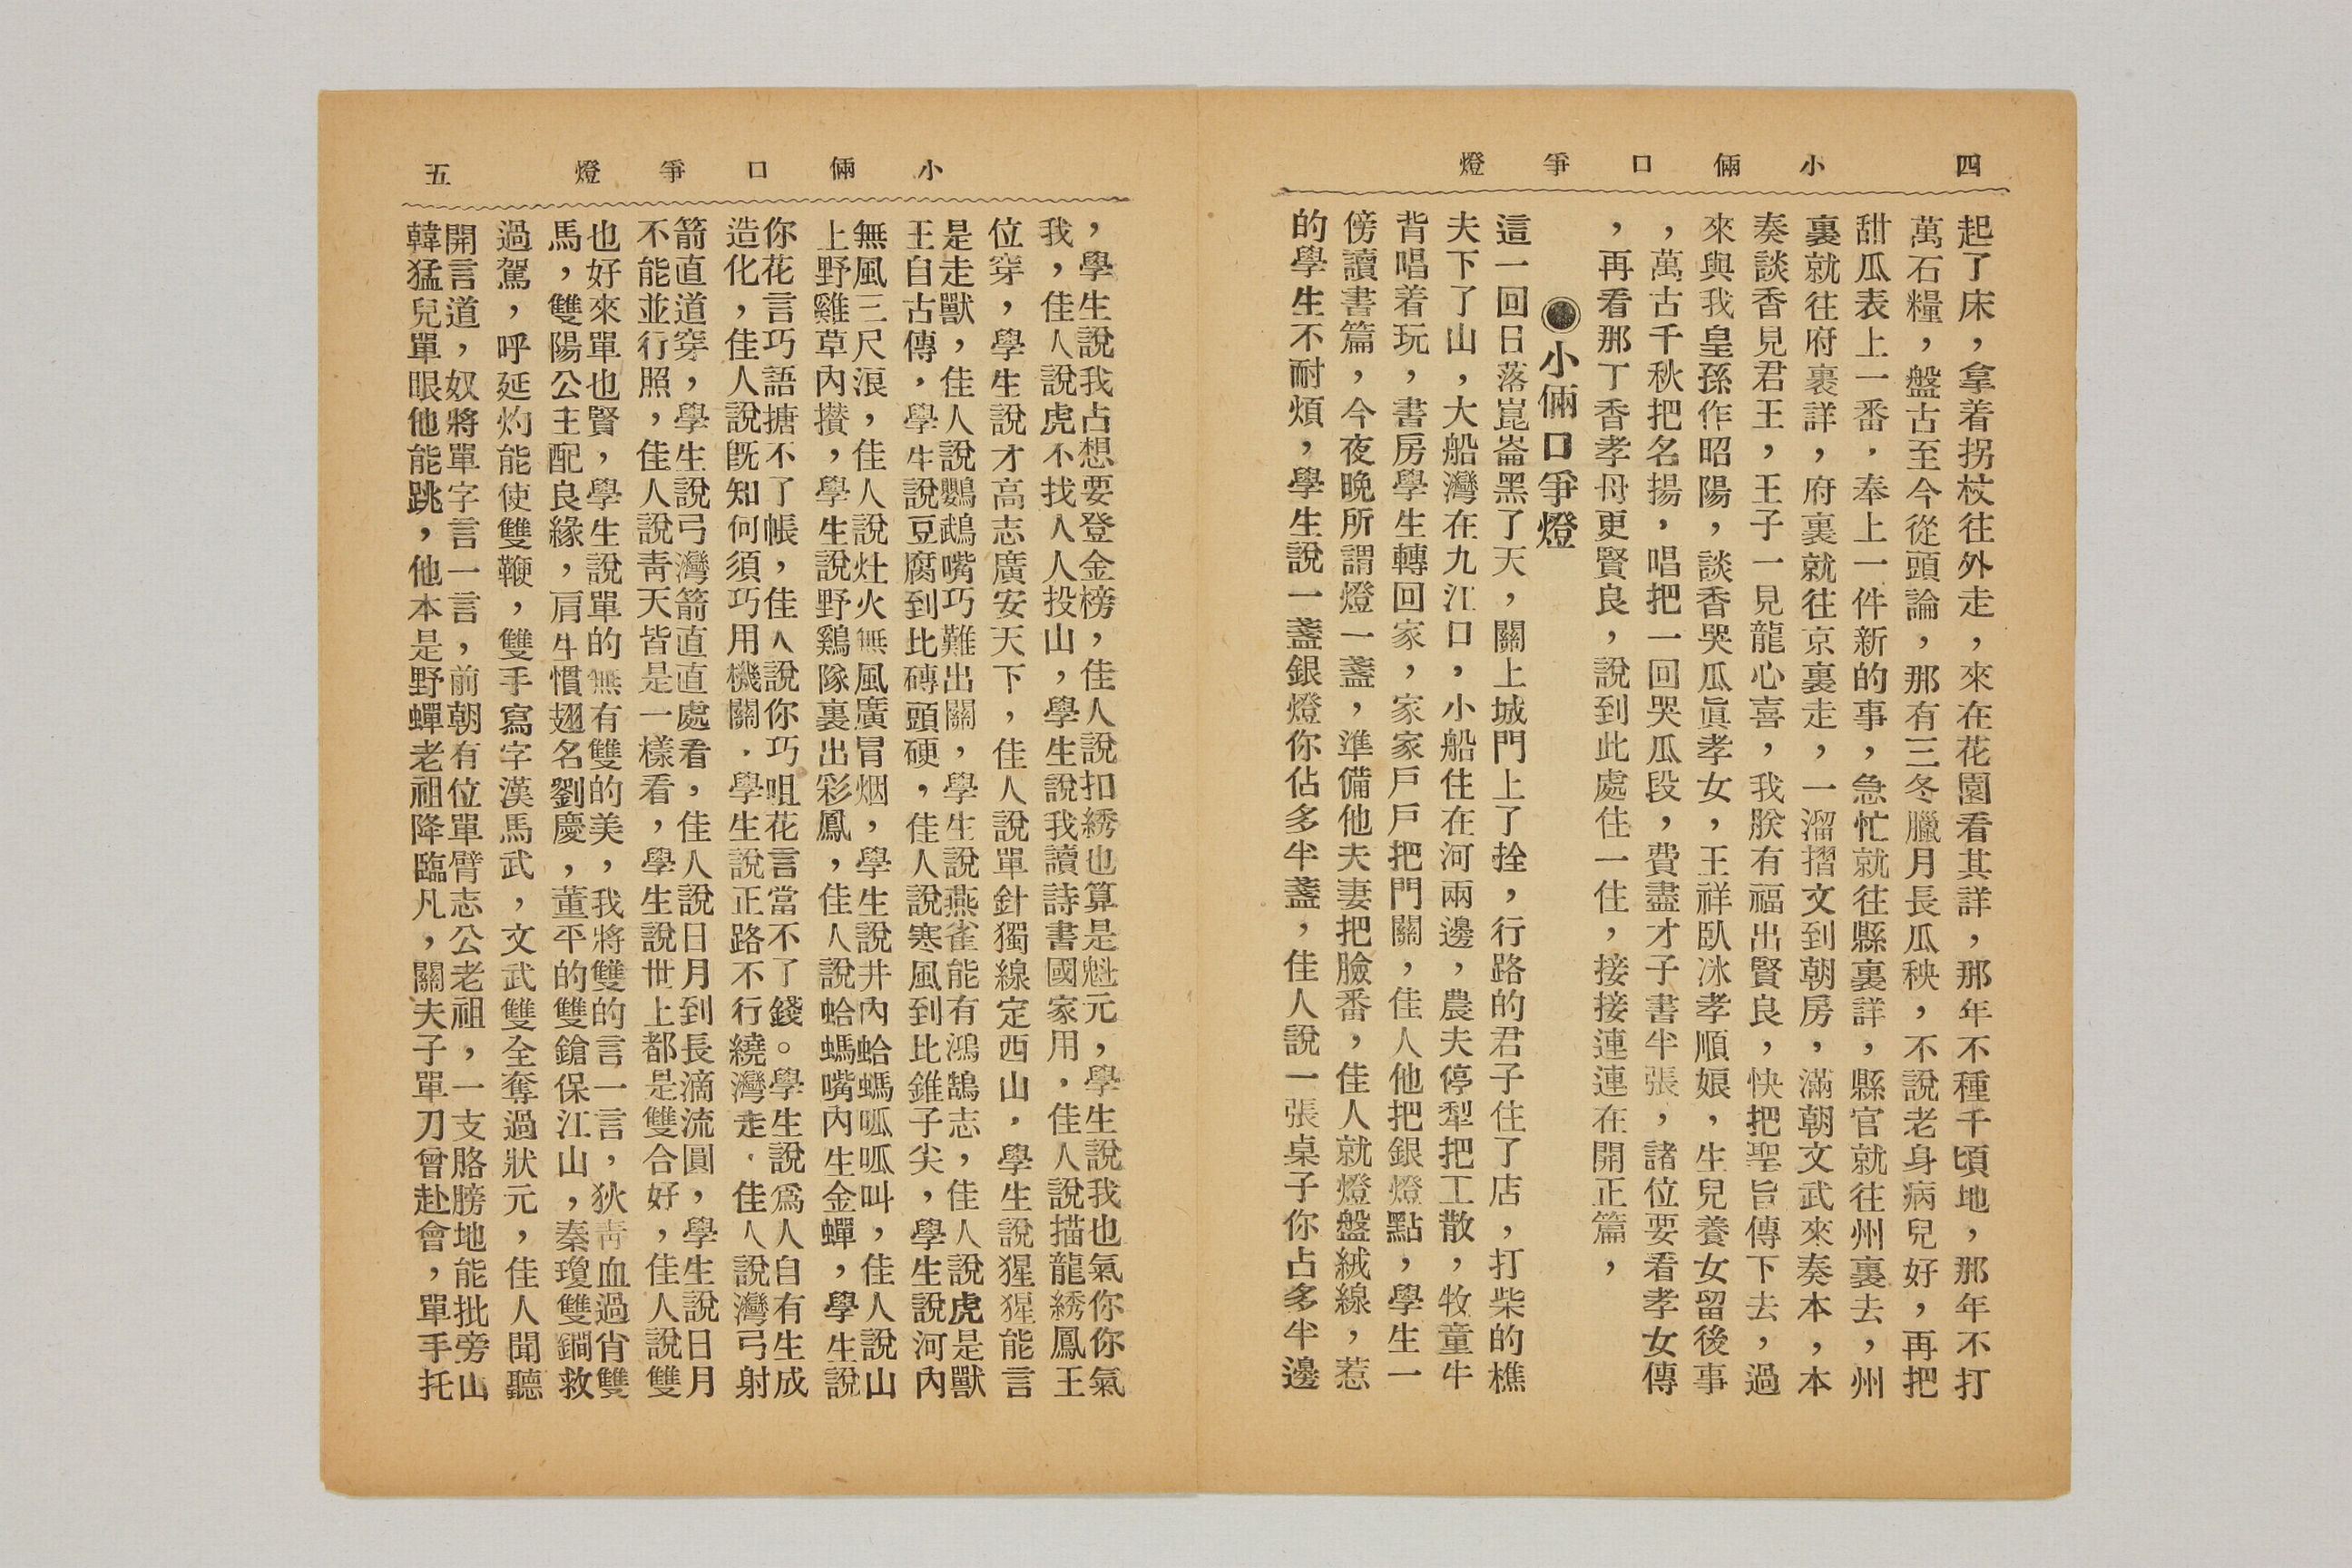 四
小倆口爭燈
起了床，拿着拐杖往外走，來在花園看其詳，那年不種千頃地，那年不打
萬石糧，盤古至今從頭論，那有三冬臘月長瓜秧，不說老身病兒好，再把
甜瓜表上一番，奉上一件新的事，急忙就往縣裏詳，縣官就往州裏去，州
裏就往府裏詳，府裏就往京裏走，一溜摺文到朝房，滿朝文武來奏本，本
奏談香見君王，王子一見龍心喜，我朕有福出賢良，快把聖旨傳下去，過
來與我皇孫作昭陽，談香哭瓜眞孝女，王祥臥冰孝順娘，生兒養女留後事
，萬古千秋把名揚，唱把一回哭瓜段，費盡才子書半張，諸位要看孝女傳
，再看那丁香孝母更賢良，說到此處住一住，接接連連在開正篇，
◉小倆口爭燈
這一回日落崑崙黑了天，關上城門上了拴，行路的君子住了店，打柴的樵
夫下了山，大船灣在九江口，小船住在河兩邊，農夫停犁把工散，牧童牛
背唱着玩，書房學生轉回家，家家戶戶把門關，佳人他把銀燈點，學生一
傍讀書篇，今夜晚所謂燈一盞，準備他夫妻把臉番，佳人就燈盤絨線，惹
的學生不耐煩，學生說一盞銀燈你佔多半盞，佳人說一張桌子你占多半邊
五
小倆口爭燈
，學生說我占想要登金榜，佳人說扣綉也算是魁元，學生說我也氣你你氣
我，佳人說虎不找人人投山，學生說我讀詩書國家用，佳人說描龍綉鳳王
位穿，學生說才高志廣安天下，佳人說單針獨線定西山，學生說猩猩能言
是走獸，佳人說鸚鵡嘴巧難出關，學生說燕雀能有鴻鵠志，佳人說虎是獸
王自古傳，學生說豆腐到比磚頭硬，佳人說寒風到比錐子尖，學生說河內
無風三尺浪，佳人說灶火無風廣冒烟，學生說井內蛤螞呱呱叫，佳人說山
上野雞草內攢，學生說野鷄隊裏出彩鳳，佳人說蛤螞嘴內生金蟬，學生說
你花言巧語搪不了帳，佳人說你巧咀花言當不了錢。學生說爲人自有生成
造化，佳人說旣知何須巧用機關，學生說正路不行繞灣走，佳人說灣弓射
箭直道穿，學生說弓灣箭直直處看，佳人說日月到長滴流圓，學生說日月
不能並行照，佳人說靑天皆是一樣看，學生說世上都是雙合好，佳人說雙
也好來單也賢，學生說單的無有雙的美，我將雙的言一言，狄靑血過肖雙
馬，雙陽公主配良緣，肩生慣翅名劉慶，董平的雙鎗保江山，秦瓊雙鐧救
過駕，呼延灼能使雙鞭，雙手寫字漢馬武，文武雙全奪過狀元，佳人聞聽
開言道，奴將單字言一言，前朝有位單臂志公老祖，一支胳膀地能批旁山
韓猛兒單眼他能跳，他本是野蟬老祖降臨凡，關夫子單刀曾赴會，單手托